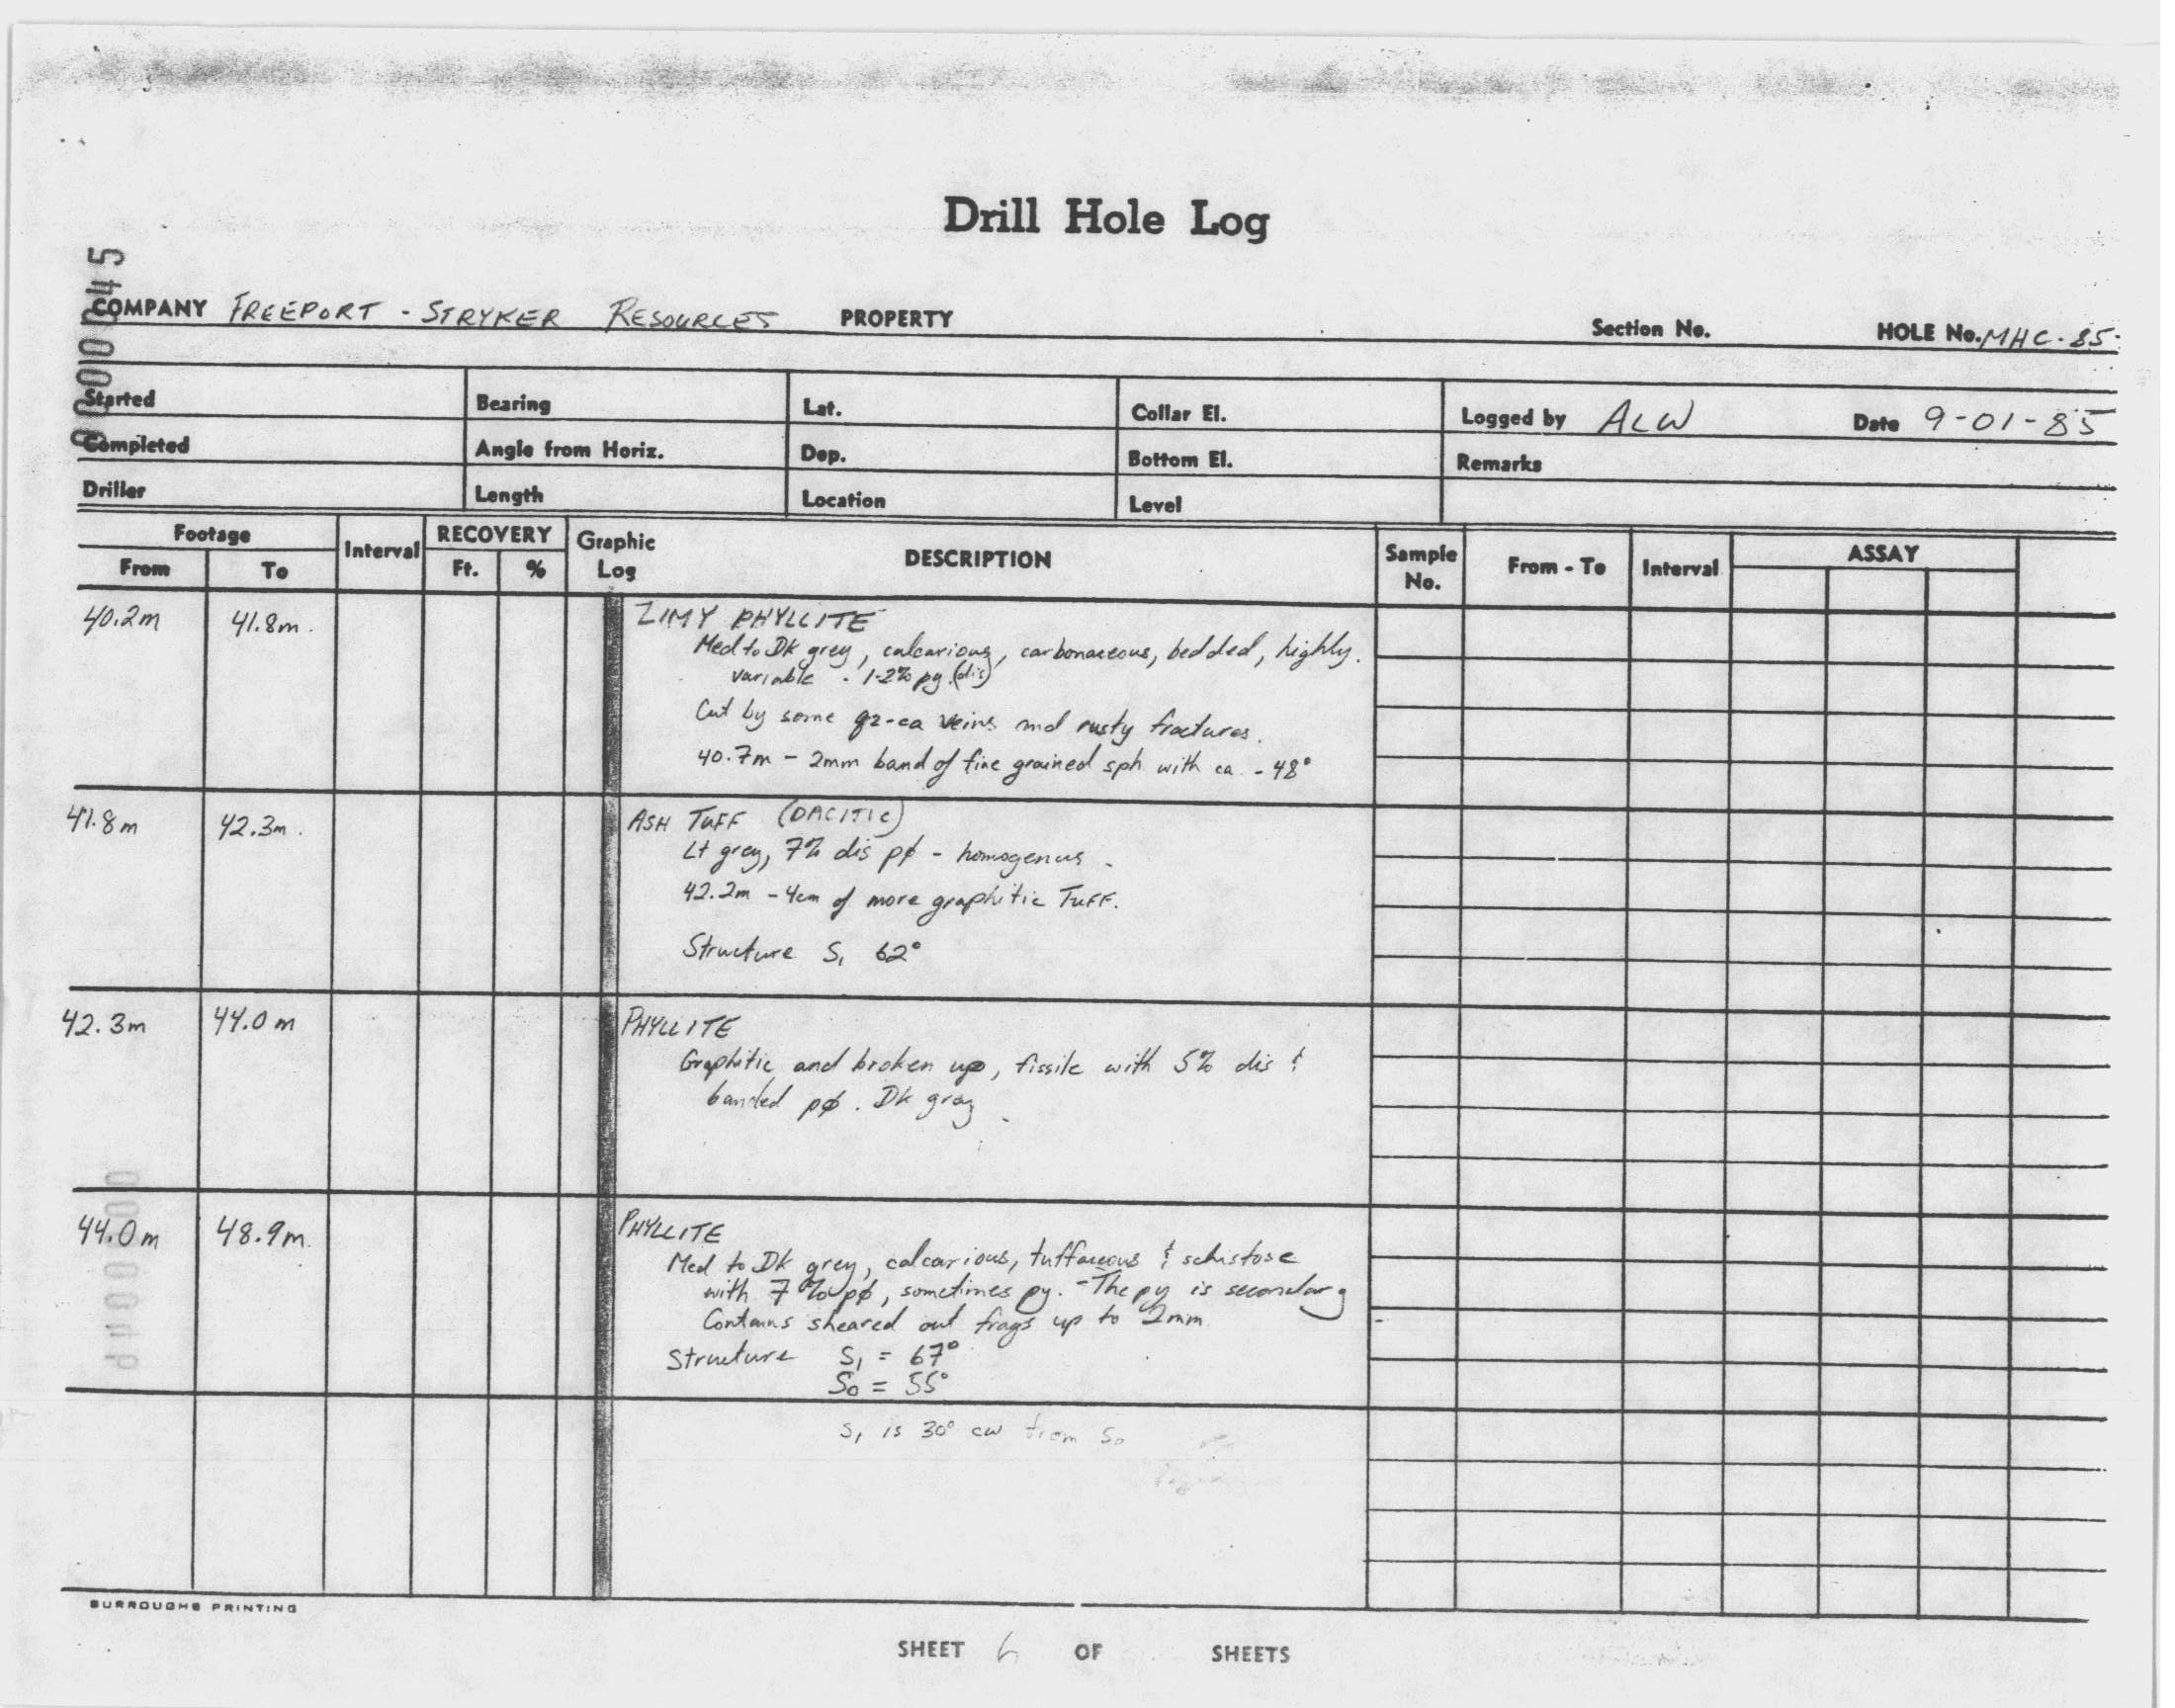 Drill Hole Log
COMPANY FREEPORT - STRYKER RESOURCES PROPERTY Section No. HOLE No. MHC-85-
Started Bearing Lat. Collar El. Logged by ALW Date 9-01-85
Completed Angle from Horiz. Dep. Bottom El. Remarks
Driller Length Location Level
Footage Interval RECOVERY Graphic Log DESCRIPTION Sample No. From - To Interval ASSAY
From To Ft. %
40.2m 41.8m. LIMY PHYLLITE
Med to Dk grey, calcarious, carbonaceous, bedded, highly.
variable . 1-2% py (dis)
Cut by some qz-ca veins and rusty fractures.
40.7m - 2mm band of fine grained sph with ca - 48°
41.8m 42.3m. ASH TUFF (DACITIC)
Lt grey, 7% dis pø - homogenus .
42.2m - 4cm of more graphitic TUFF.
Structure S1 62°
42.3m 44.0m PHYLLITE
Graphitic and broken up, fissile with 5% dis &
banded pø. Dk gray
44.0m 48.9m. PHYLLITE
Med to Dk grey, calcarious, tuffaceous & schistose
with 7% pø, sometimes py. - The py is secondary
Contains sheared out frags up to 2mm
Structure S1 = 67°
So = 55°
S1 is 30° cw from So
BURROUGHS PRINTING
SHEET 6 OF SHEETS